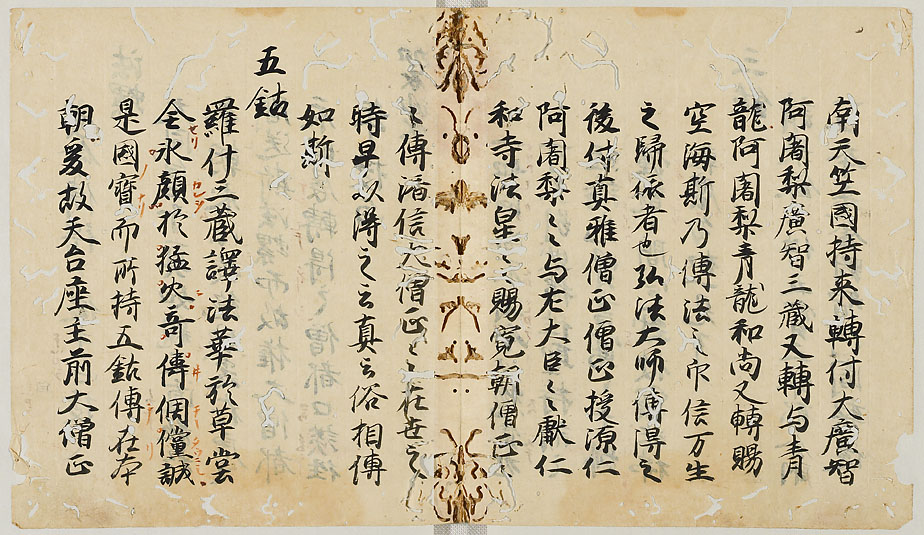 南天竺國持来轉付大廣智
阿闍梨廣智三藏又轉与青
龍阿闍梨青龍和尚又轉賜
空海斯乃傳法之印信万生
之歸依者也弘法大師傳得之
後付真雅僧正僧正授源仁
阿闍梨〻〻与左大臣〻〻獻仁
和寺法皇〻〻賜寛朝僧正〻
〻傳済信大僧正〻〻在世之
時早以得之云真云俗相傳
如斯
五鈷
羅什三藏譯法華於草堂
全永願於猛火奇傳個儻誠
是國寶而所持五鈷傳在本
朝爰故天台座主前大僧正